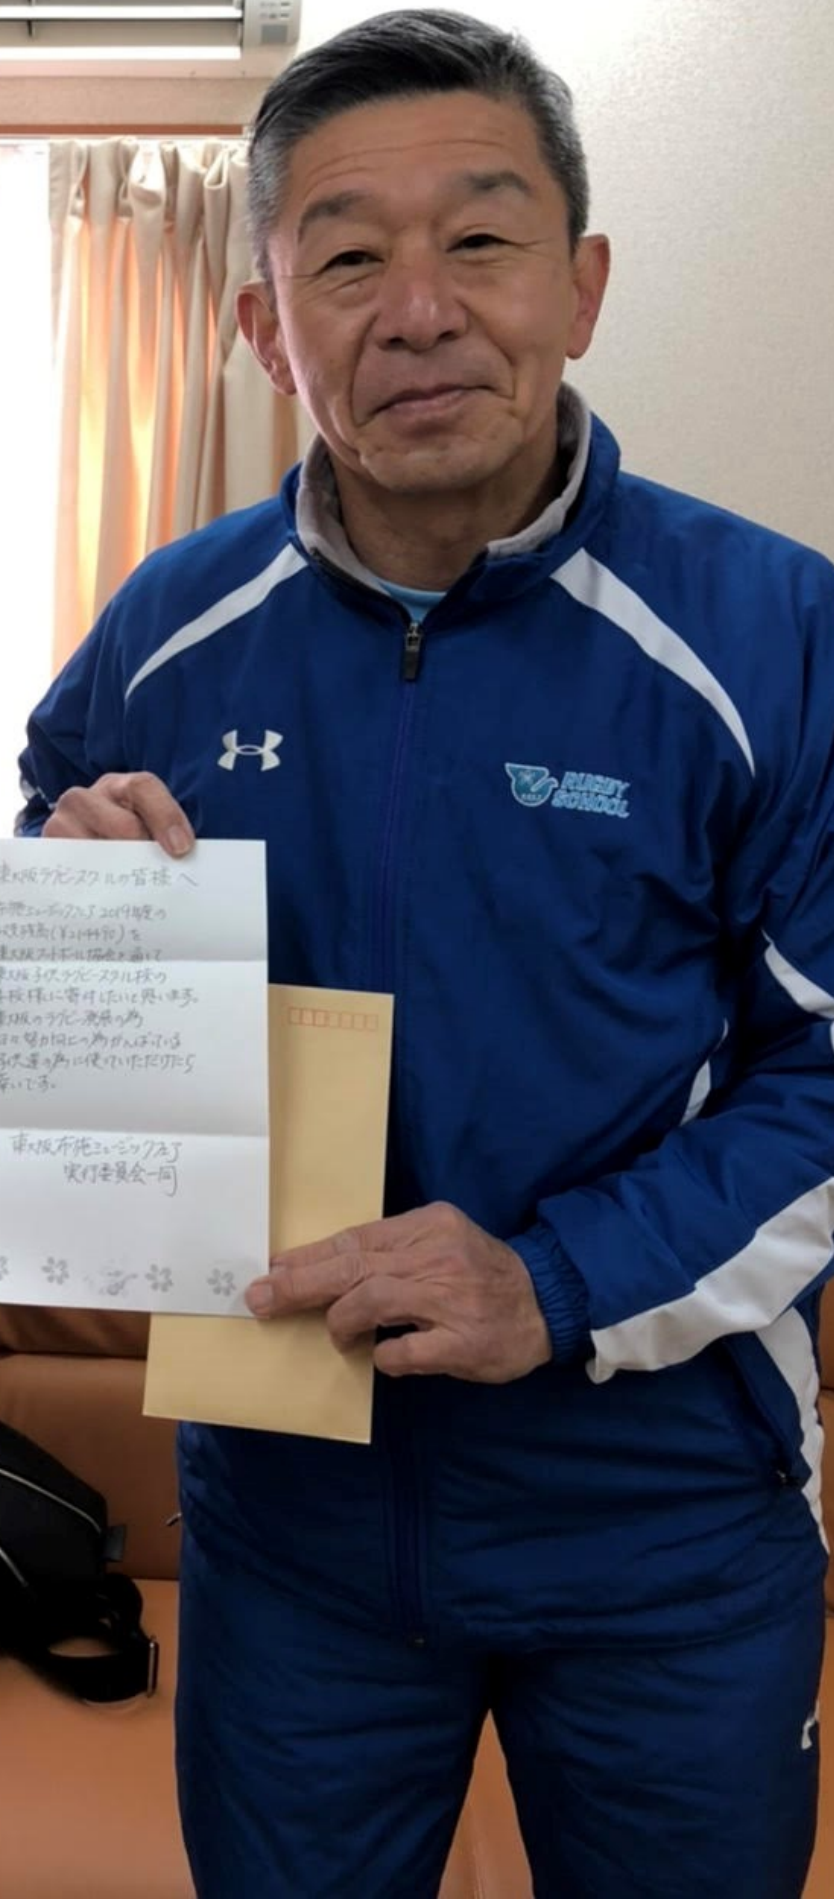 RUGBY
SCHOOL
東大阪ラグビースクールの皆様へ
布施ミュージックフェア2019年度の
残高(¥214490)を
東大阪フットボール協会を通じて
東大阪子供ラグビースクール校の
各校様に寄付したいと思います。
東大阪のラグビー発展の為
日々努力向上の為がんばっている
子供達の為に使っていただけたら
幸いです。
東大阪布施ミュージックフェア
実行委員会一同